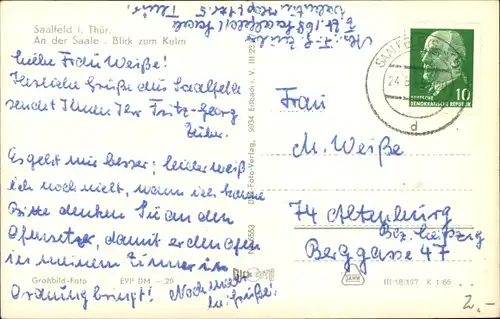 Saalfeld i. Thür.
An der Saale . Blick zum Kulm
Liebe Frau Weiße!
Herzliche Grüße aus Saalfeld
sendet Ihnen Ihr Fritz-Georg
Es geht mir besser; leider weiß
ich noch nicht, wann ich komme
Bitte denken Sie an den
Ofensetzer, damit er den Ofen
in meinem Zimmer in
Ordnung bringt! Noch mal
Großbild-Foto EVP DM -.20
SAALFELD
24.
d
DEUTSCHE
DEMOKRATISCHE REPUBLIK
10
Frau
M. Weiße
74 Altenburg
Bez. Leipzig
Berggasse 47
III/18/197 K 1 66
2,-